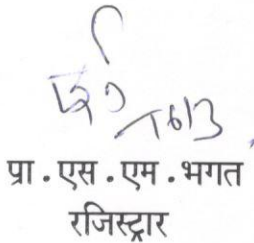 प्रा.एस.एम.भगत
रजिस्ट्रार